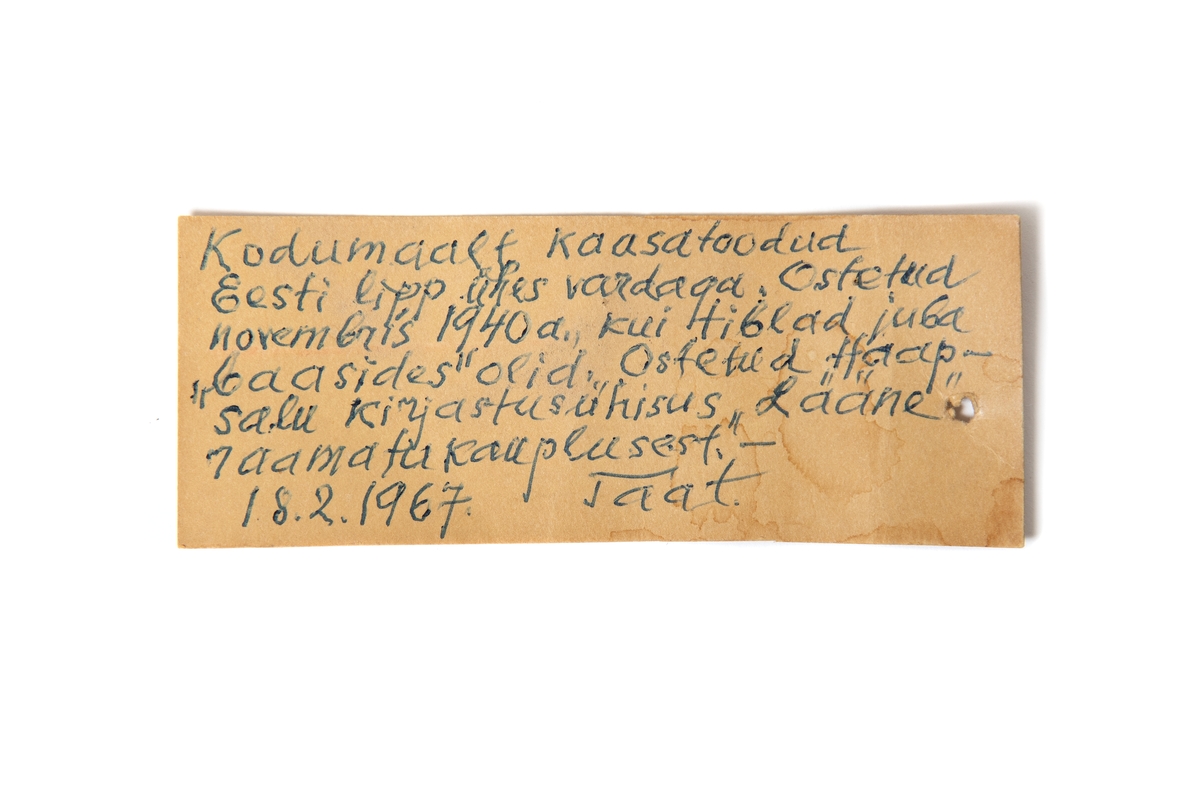 Kodumaalt kaasatoodud
Eesti lipp ühes vardaga. Ostetud
novembris 1940 a., kui tiblad juba
„baasides" olid. Ostetud Haap-
salu kirjastusühisus „Lääne"
raamatukauplusest. –
18.2.1967. Taat.